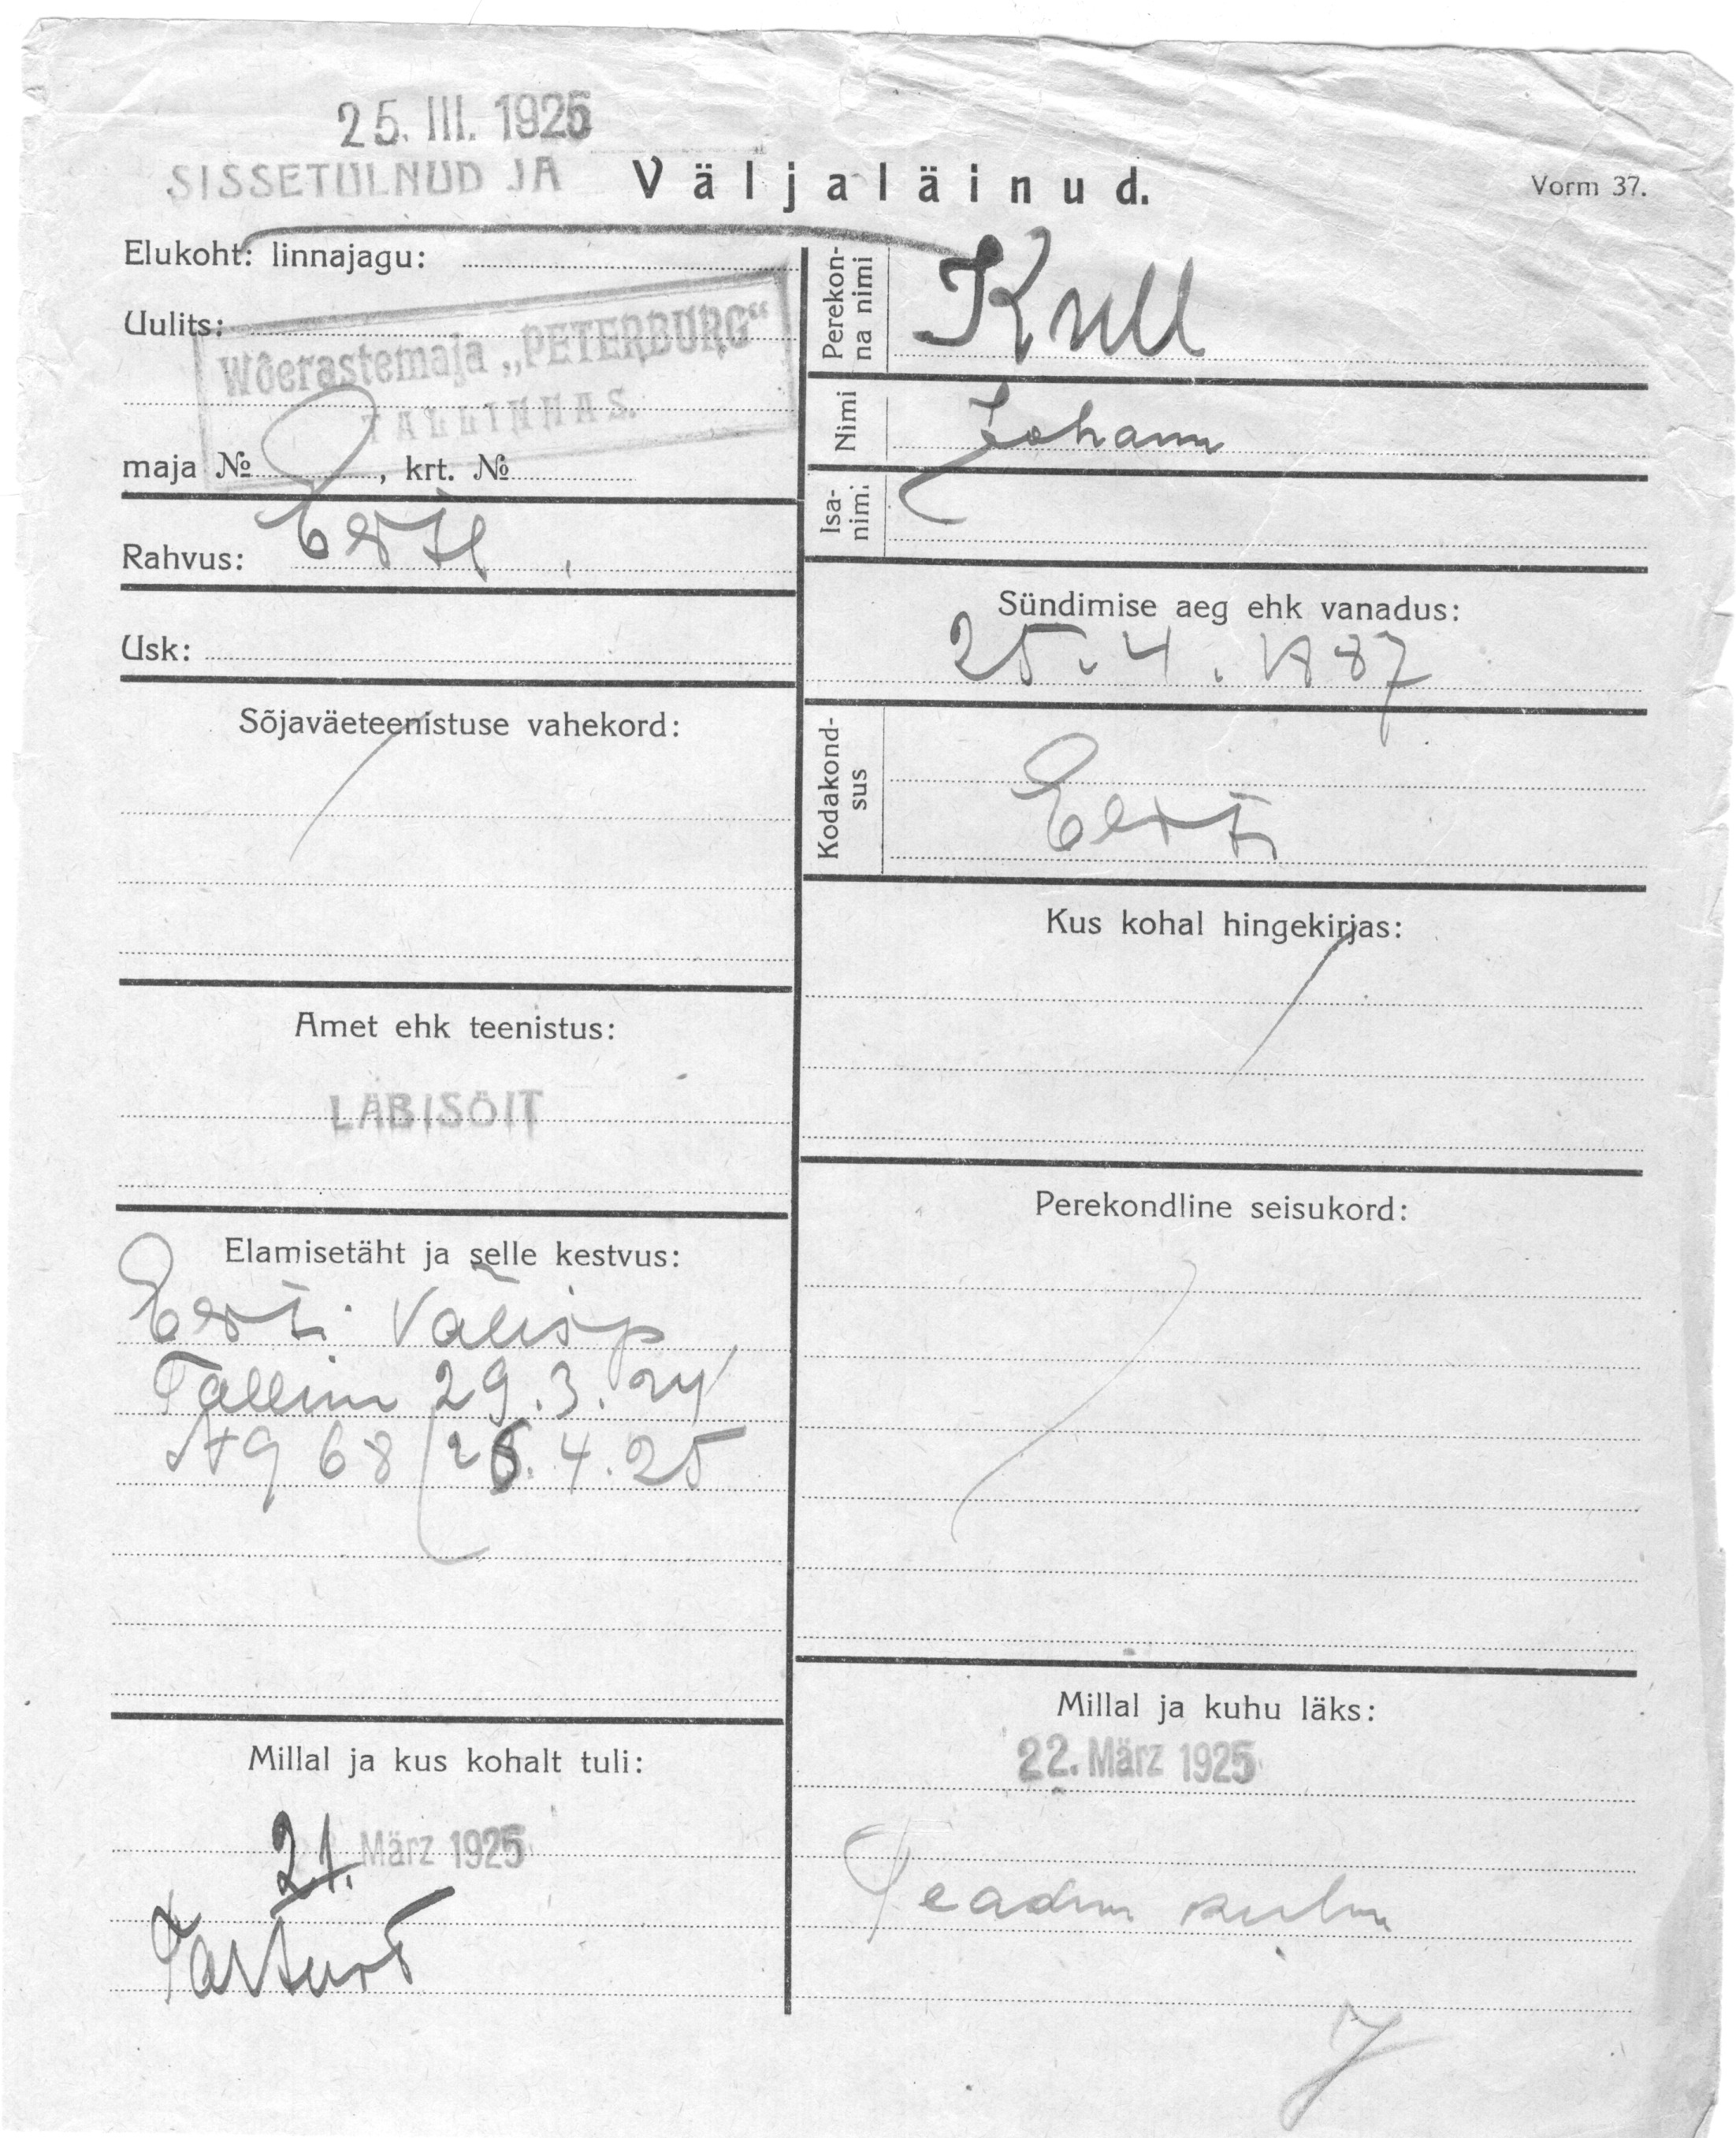 25. III. 1925
SISSETULNUD JA Väljaläinud.
Vorm 37.
Elukoht: linnajagu:
Uulits:
Wõerastemaja „PETERBURG“
TALLINNAS.
maja № , krt. №
Rahvus: Eesti
Usk:
Sõjaväeteenistuse vahekord:
Amet ehk teenistus:
LÄBISÕIT
Elamisetäht ja selle kestvus:
Eesti välisp
Tallinn 29.3.24
A9 68 25.4.25
Millal ja kus kohalt tuli:
21. März 1925
Tartust
Perekon-
na nimi
Krull
Nimi
Johann
Isa-
nimi
Sündimise aeg ehk vanadus:
25.4.1887
Kodakond-
sus
Eesti
Kus kohal hingekirjas:
Perekondline seisukord:
Millal ja kuhu läks:
22. März 1925
Teadm